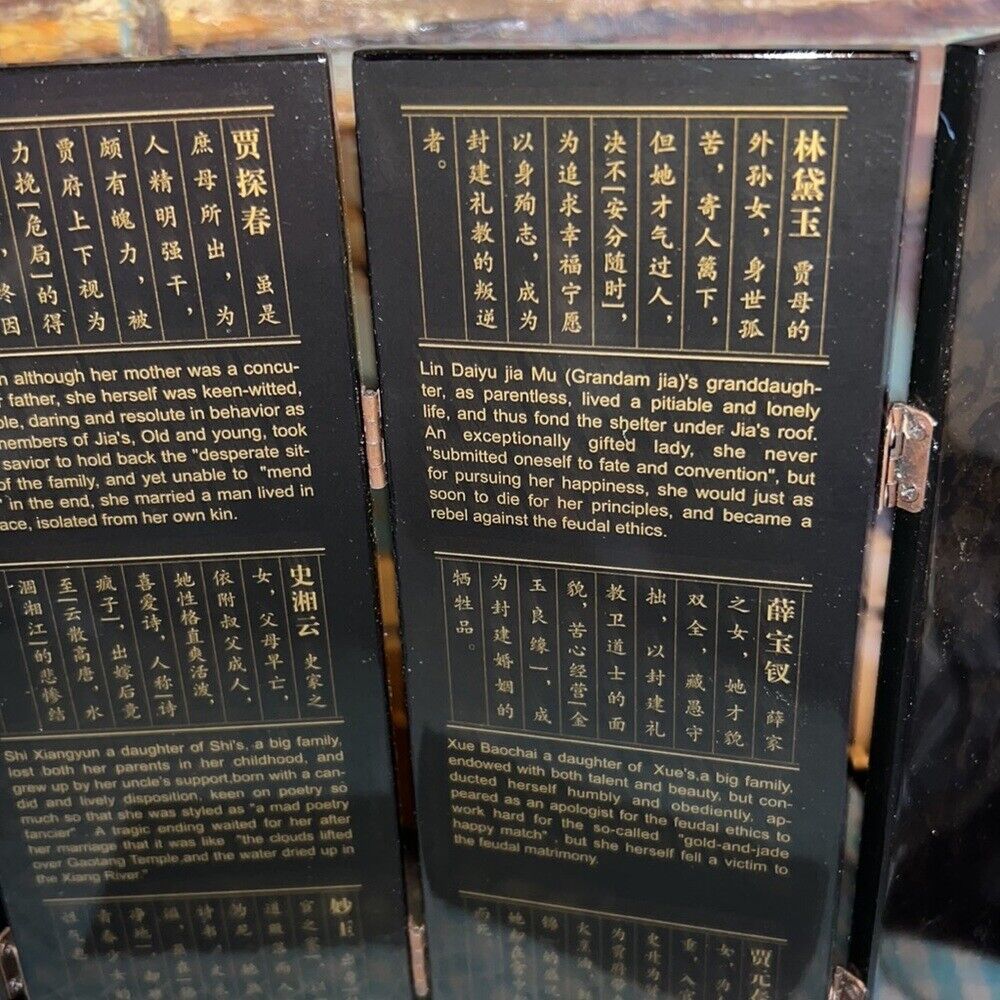 贾探春 虽是
庶母所出，为
人精明强干，
颇有魄力，被
贾府上下视为
力挽「危局」的得
，终因
although her mother was a concu-
father, she herself was keen-witted,
daring and resolute in behavior as
members of Jia's, Old and young, took
savior to hold back the "desperate sit-
of the family, and yet unable to "mend
" in the end, she married a man lived in
isolated from her own kin.
史湘云 史家之
女，父母早亡，
依附叔父成人，
她性格直爽活泼，
喜爱诗，人称「诗
疯子」，出嫁后竟
至「云散高唐，水
涸湘江」的悲惨结
Shi Xiangyun a daughter of Shi's, a big family,
lost both her parents in her childhood, and
grew up by her uncle's support,born with a can-
did and lively disposition, keen on poetry so
much so that she was styled as "a mad poetry
fancier" . A tragic ending waited for her after
her marriage that it was like "the clouds lifted
over Gaotang Temple,and the water dried up in
the Xiang River."
林黛玉 贾母的
外孙女，身世孤
苦，寄人篱下，
但她才气过人，
决不「安分随时」，
为追求幸福宁愿
以身殉志，成为
封建礼教的叛逆
者。
Lin Daiyu jia Mu (Grandam jia)'s granddaugh-
ter, as parentless, lived a pitiable and lonely
life, and thus fond the shelter under Jia's roof.
An exceptionally gifted lady, she never
"submitted oneself to fate and convention", but
for pursuing her happiness, she would just as
soon to die for her principles, and became a
rebel against the feudal ethics.
薛宝钗 薛家
之女，她才貌
双全，藏愚守
拙，以封建礼
教卫道士的面
貌，苦心经营「金
玉良缘」，成
为封建婚姻的
牺牲品。
Xue Baochai a daughter of Xue's,a big family,
endowed with both talent and beauty, but con-
ducted herself humbly and obediently, ap-
peared as an apologist for the feudal ethics to
work hard for the so-called "gold-and-jade
happy match" , but she herself fell a victim to
the feudal matrimony.